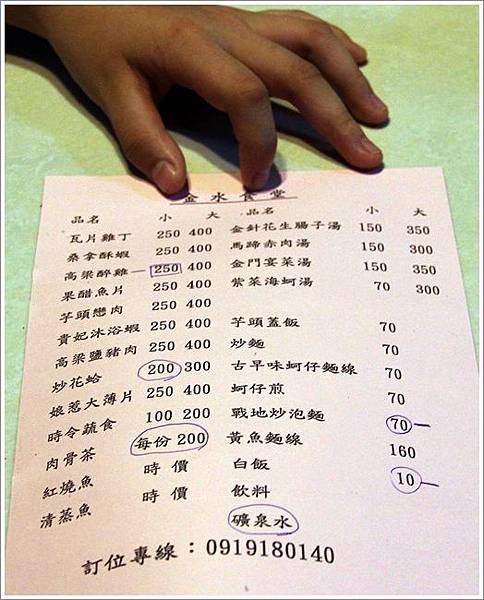 金水食堂
品名 小 大
瓦片雞丁 250 400
桑拿酥蝦 250 400
高梁醉雞 250 400
果醋魚片 250 400
芋頭戀肉 250 400
貴妃沐浴蝦 250 400
高梁鹽豬肉 250 400
炒花蛤 200 300
娘惹大薄片 250 400
時令蔬食 100 200
肉骨茶 每份 200
紅燒魚 時價
清蒸魚 時價
品名 小 大
金針花生腸子湯 150 350
馬蹄赤肉湯 150 350
金門宴菜湯 150 350
紫菜海蚵湯 70 300
芋頭蓋飯 70
炒麵 70
古早味蚵仔麵線 70
蚵仔煎 70
戰地炒泡麵 70
黃魚麵線 160
白飯 10
飲料
礦泉水
訂位專線：0919180140